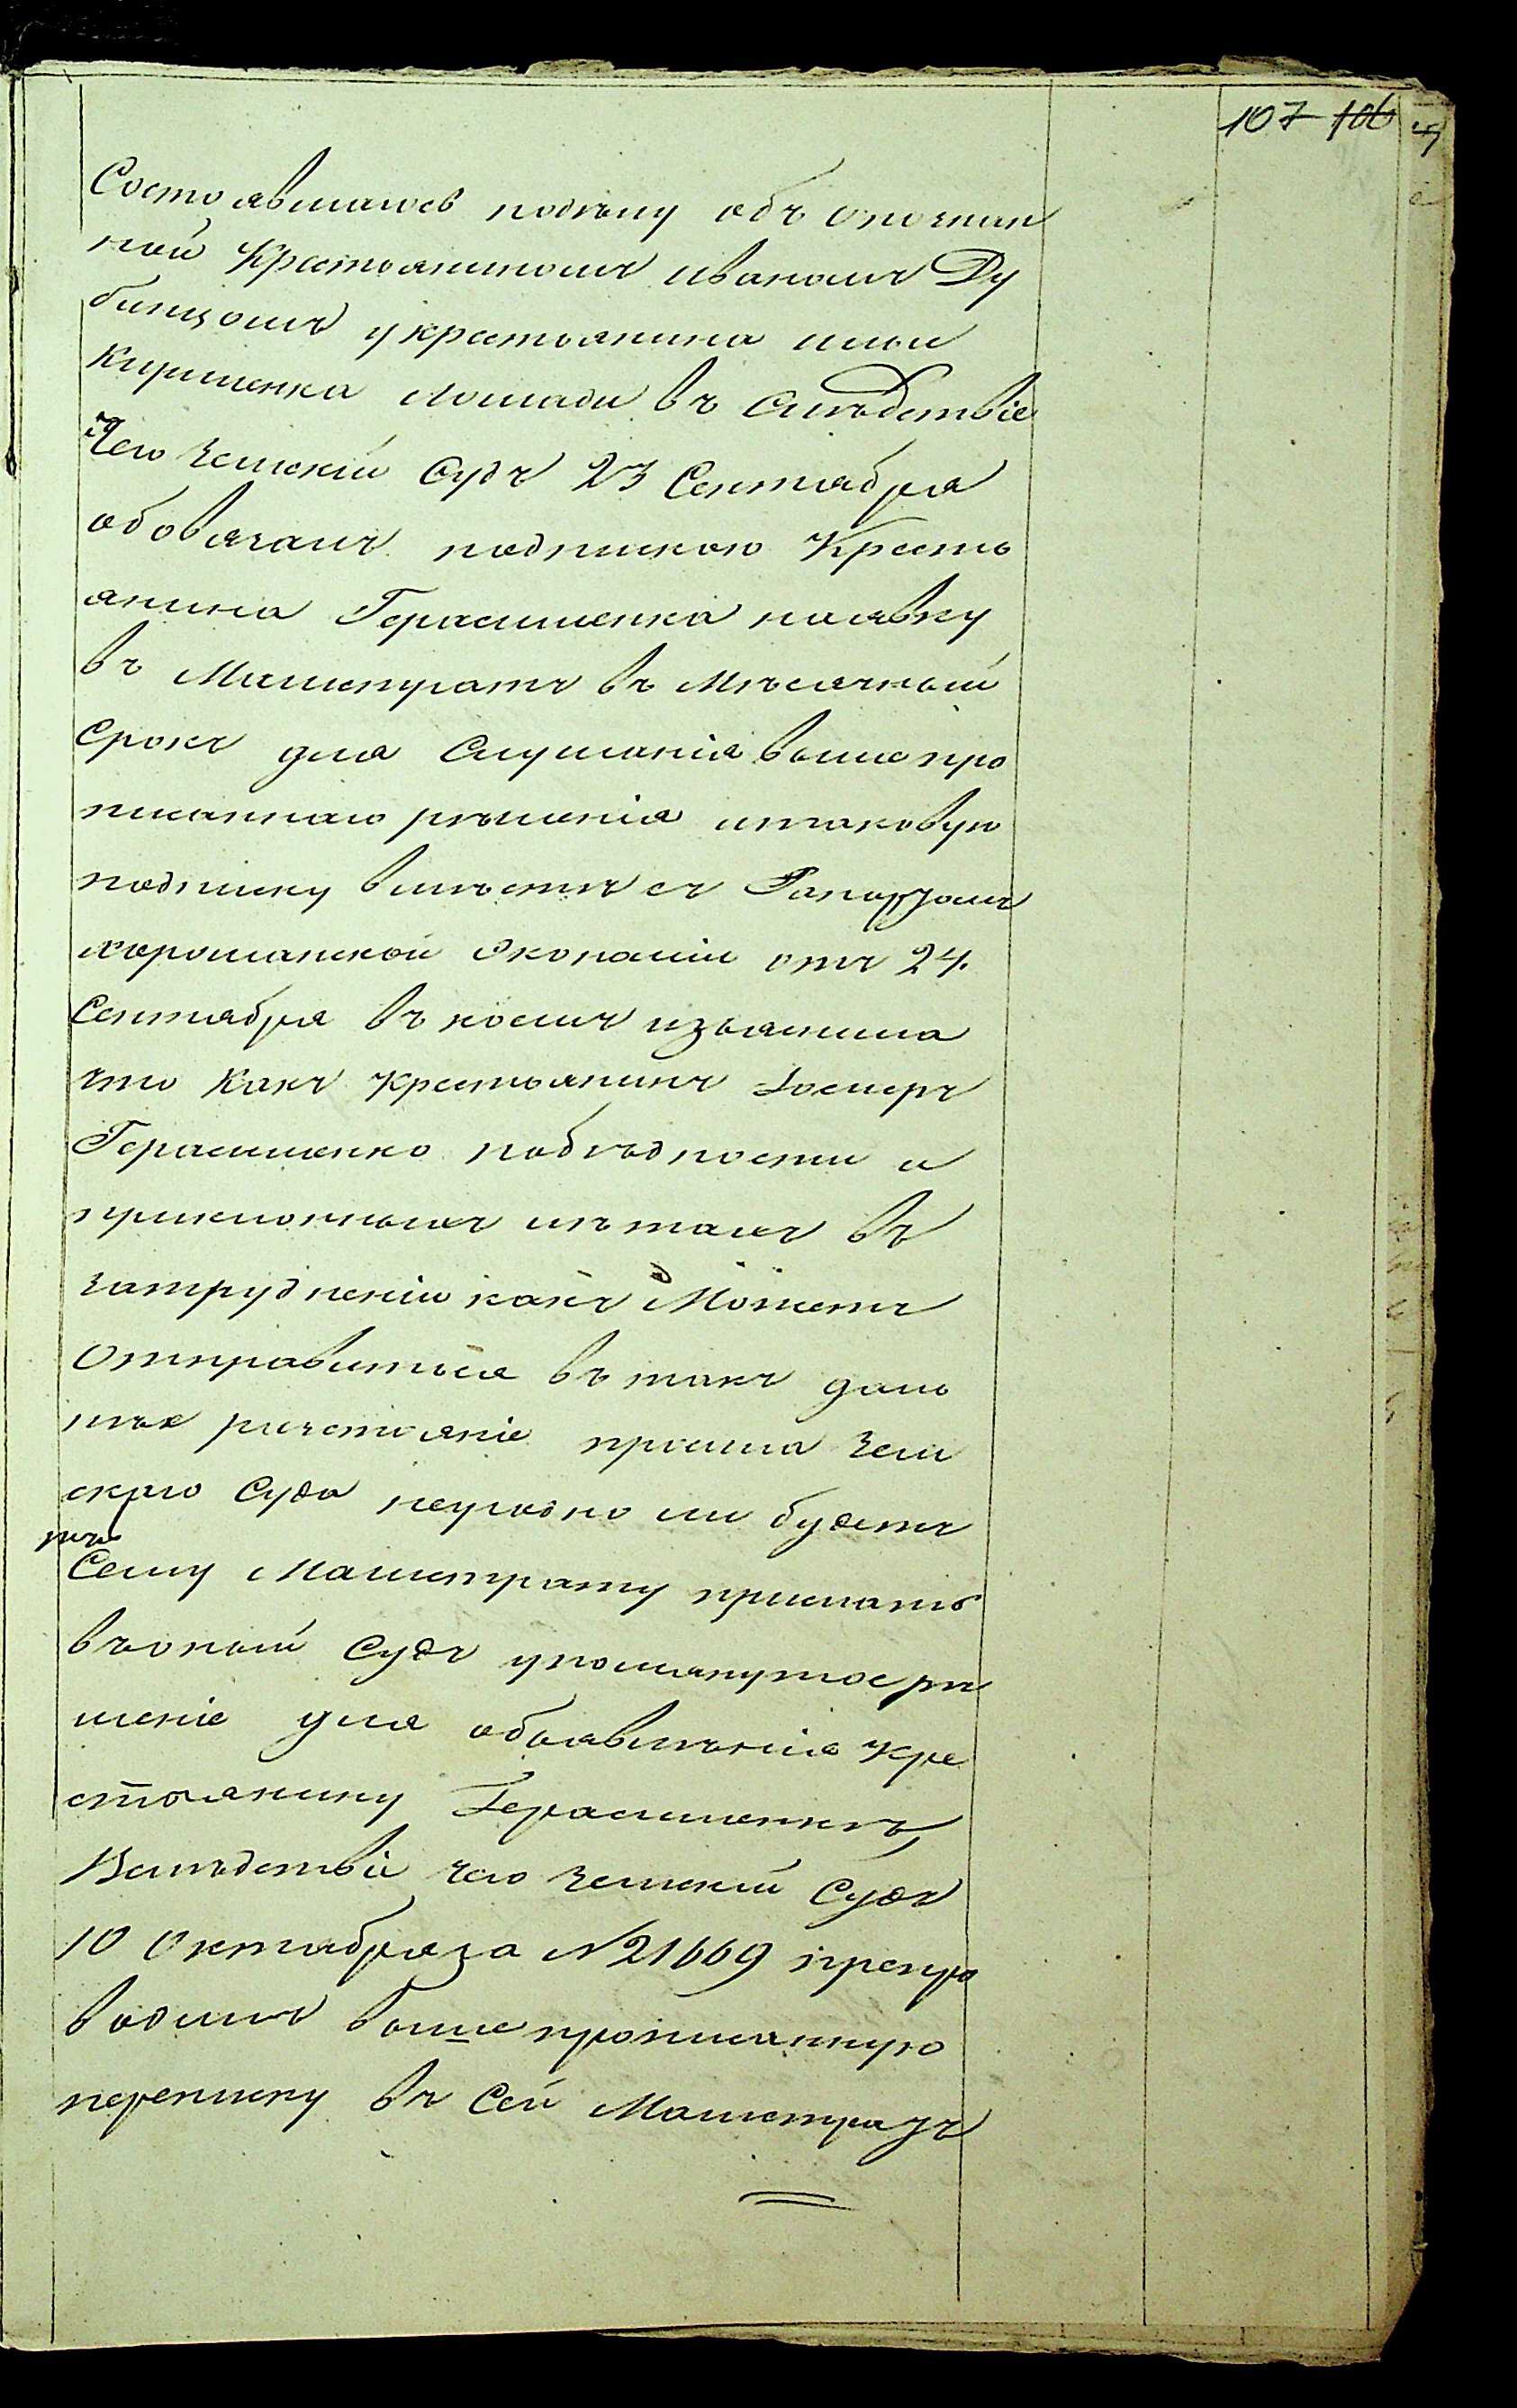 107 106
Состоявшагося поделу объ опознан
ной Крестьяниномъ Иваномъ Ду
бинцомъ у крестьянина Ильи
Киришенка лошади въ Слѣдствіе
Чего Земскій Судъ 23 Сентября
обовязалъ подпискою Кресть
янина Герасименка наявку
въ Магистратъ въ Мѣсячный
Срокъ для Слушанія вышепро
писаннаго рѣшенія итаковую
подписку вмѣстѣ съ Рапортомъ
хорошанской Экономіи отъ 24.
Сентября въ коемъ изъяснила
что Какъ Крестьянинъ Іосифъ
Герасименко побѣдности и
преклоннымъ лѣтамъ въ
затрудненіи какъ Можетъ
Отправиться въ такъ даль
нѣе разстояніе просила Зем
скаго Суда неугодно ли будетъ
Сему Магистрату прислать
въоный Судъ упомянутое рѣ
шеніе для объявленія Кре
стьянину Герасименкѣ,
Вслѣдствіе чего Земскій Судъ
10 Октября за №21669 препро
водилъ вышепрописанную
переписку въ Сей Магистратъ